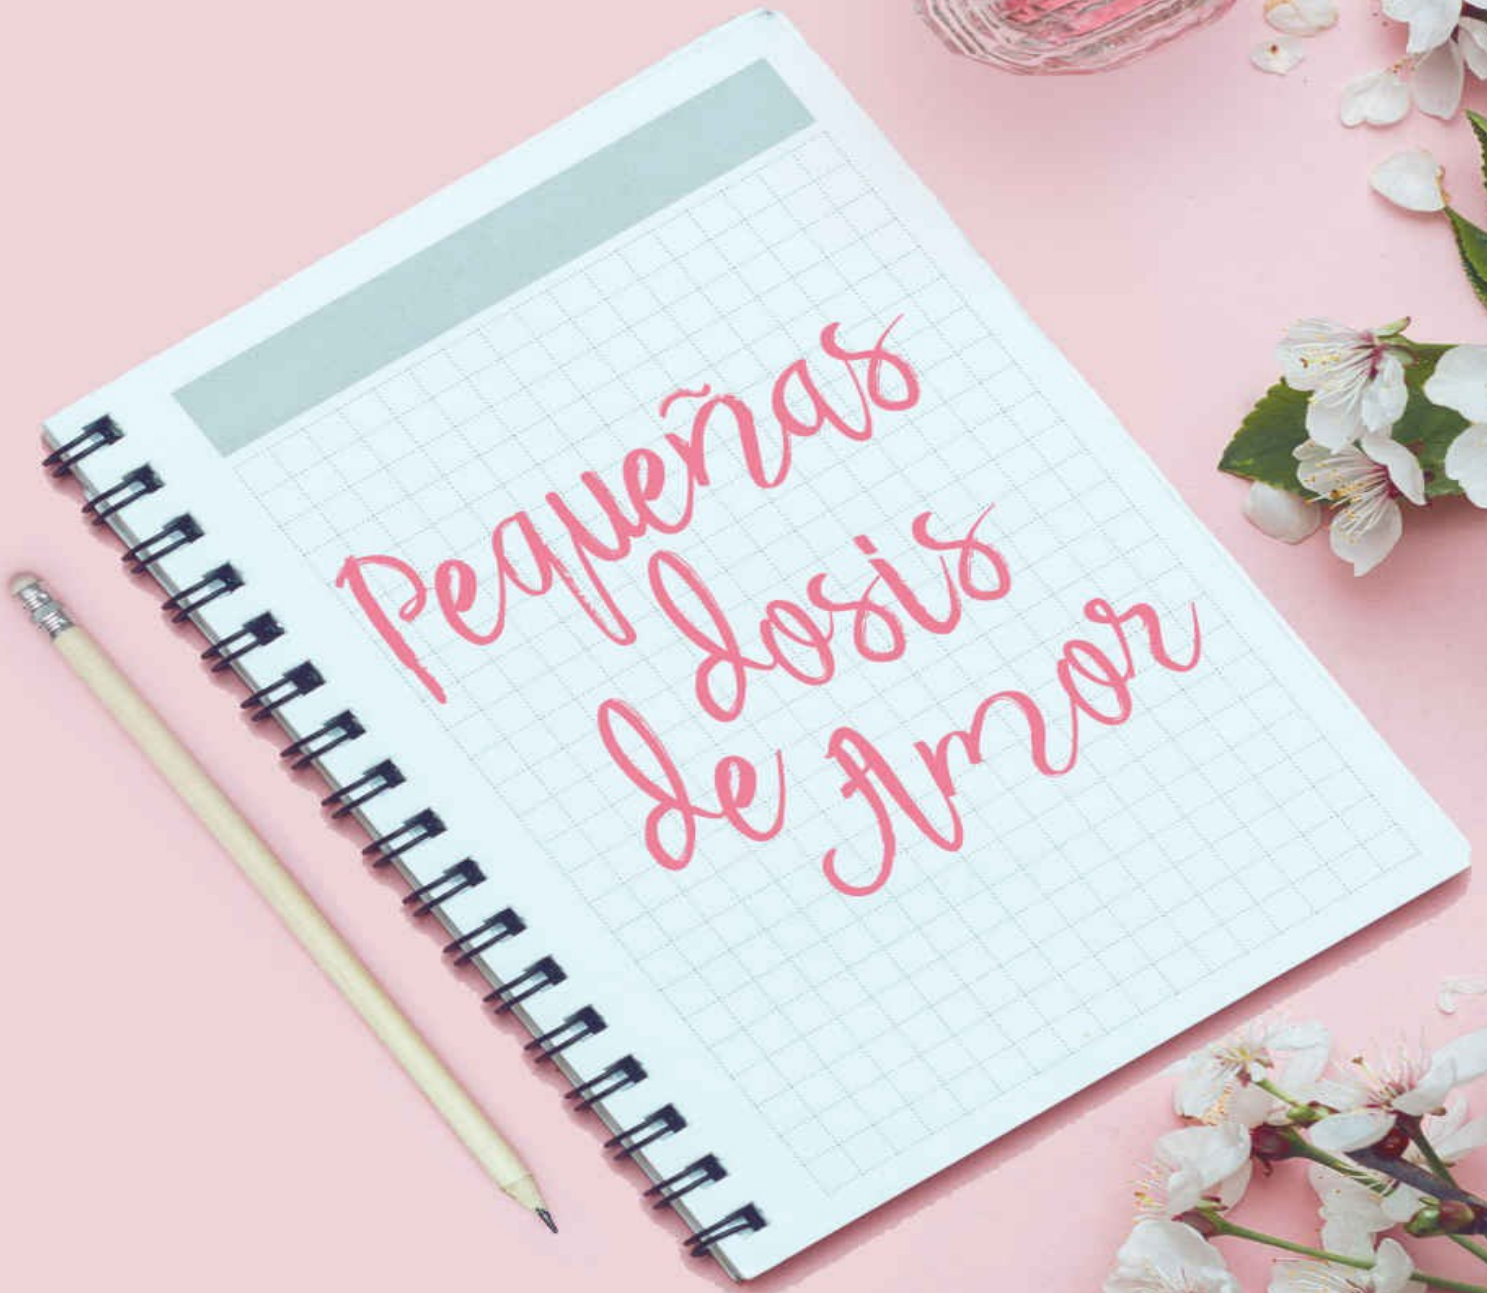 Pequeñas
dosis
de Amor